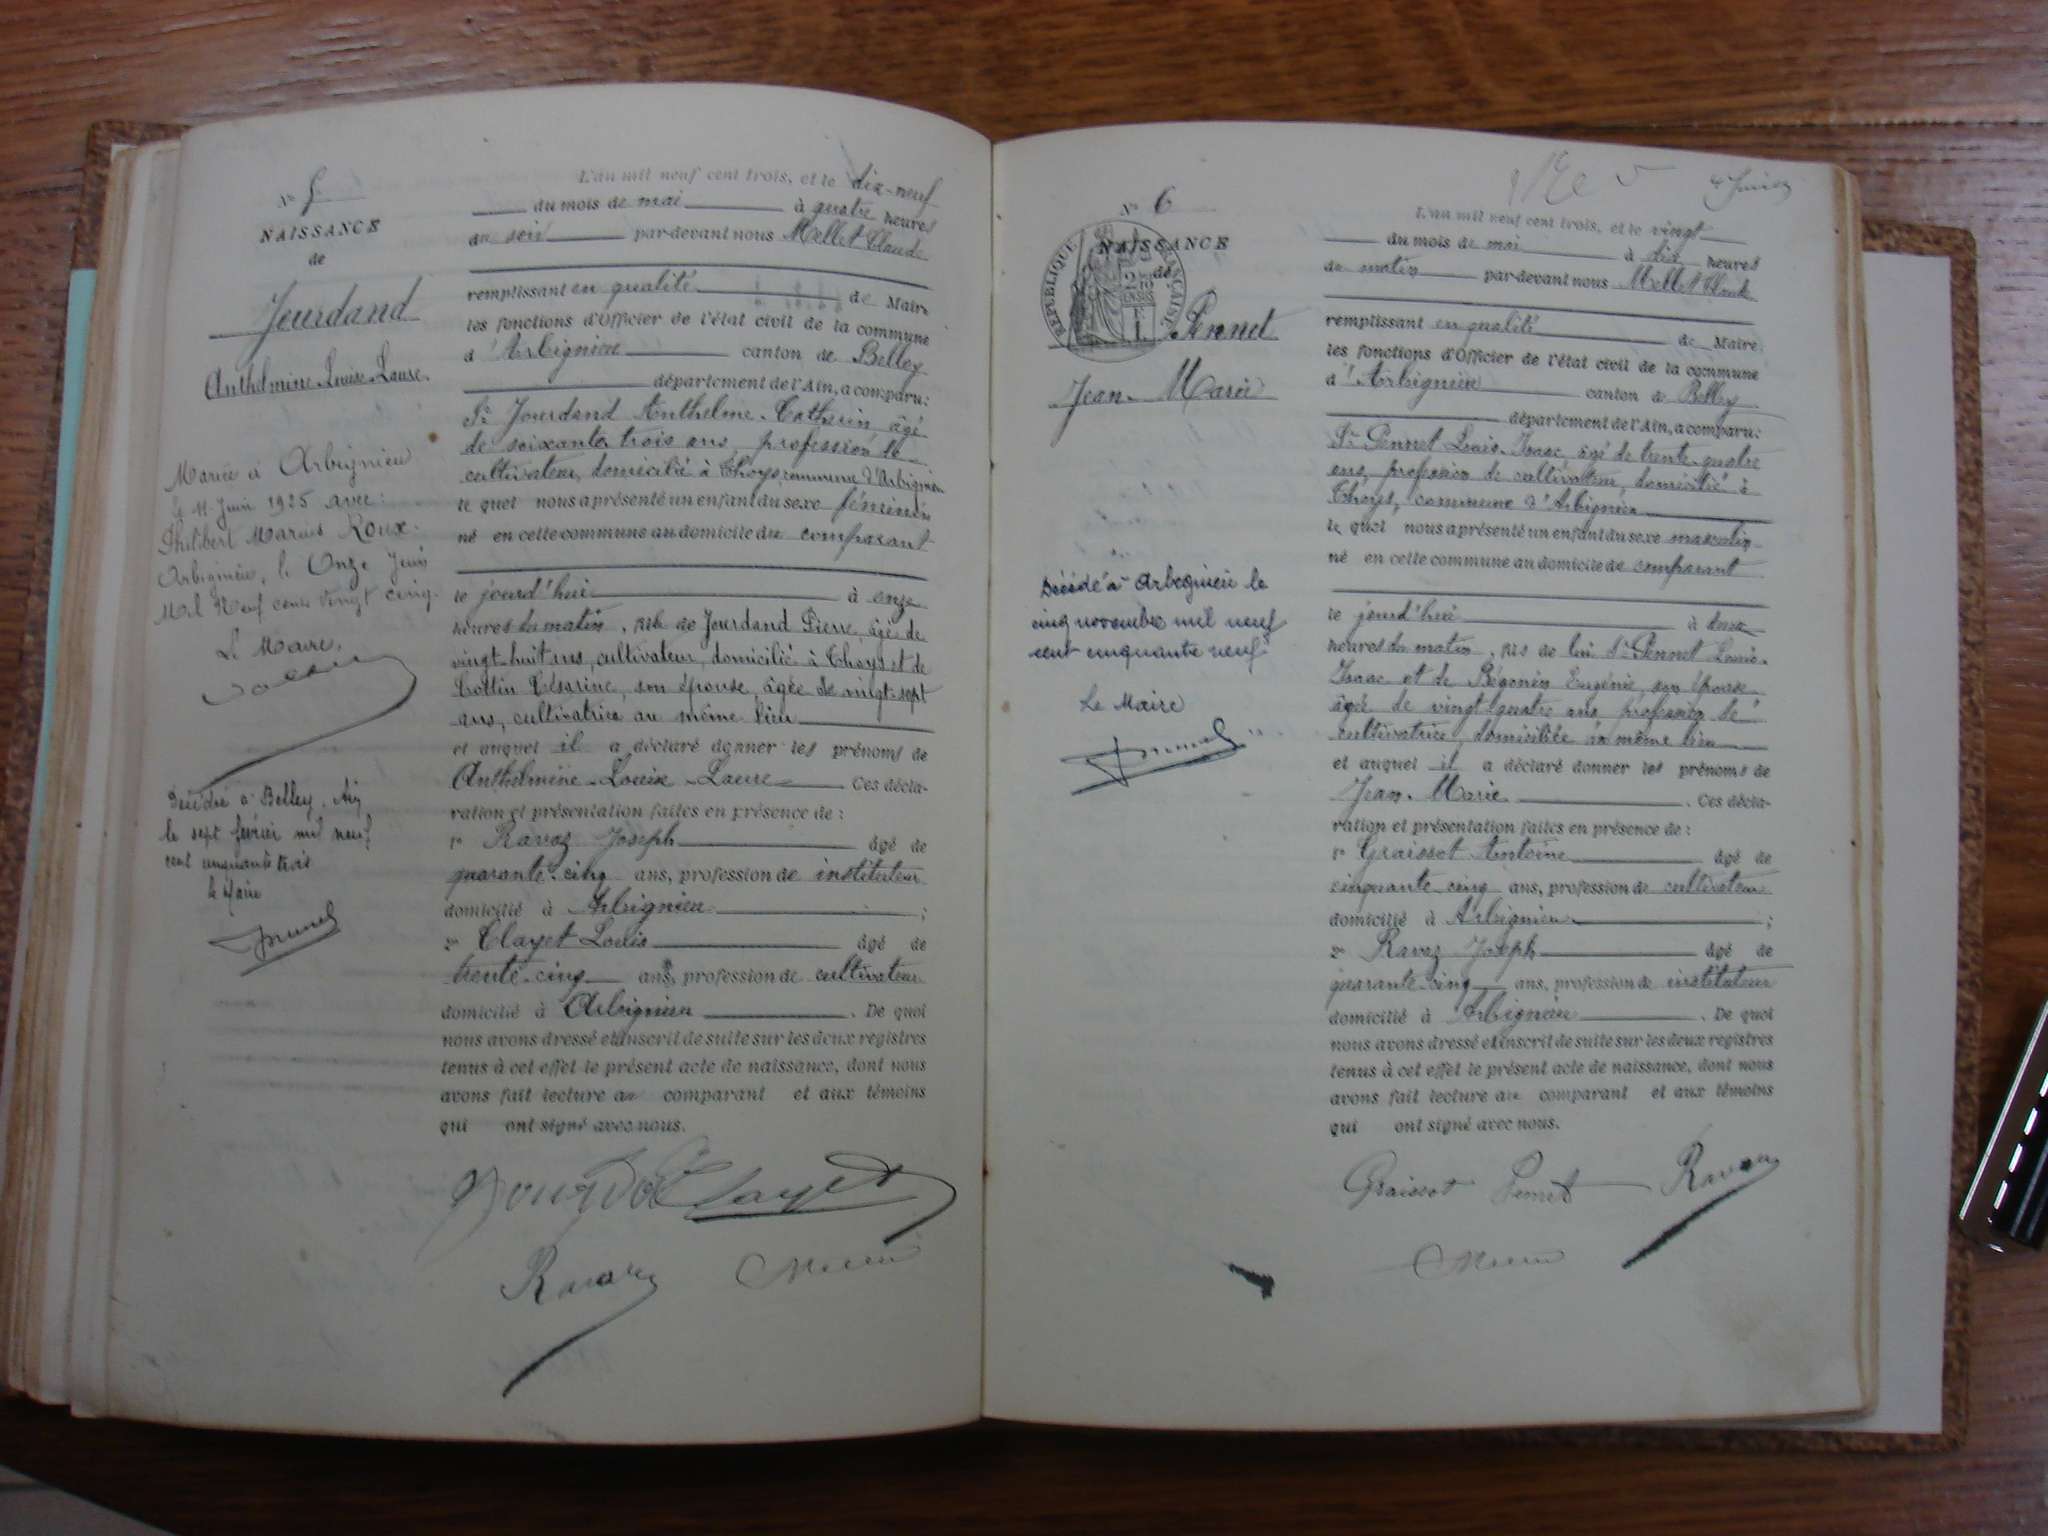 N° 5
NAISSANCE
de
Jourdand
Anthelmine Louise Laure.
Mariée à Arbignieu
le 11 Juin 1925 avec:
Philibert Marius Roux.
Arbignieu, le Onze Juin
Mil Neuf cent vingt cinq.
Le Maire,
Décédée à Belley, Ain
le sept février mil neuf
cent cinquante trois
le Maire
L'an mil neuf cent trois, et le dix-neuf
du mois de mai à quatre heures
du soir par-devant nous Mellet Claude
remplissant en qualité de Maire
les fonctions d'Officier de l'état civil de la commune
d'Arbignieu canton de Belley
département de l'Ain, a comparu:
Sr Jourdand Anthelme-Catherin âgé
de soixante trois ans, profession de
cultivateur, domicilié à Thoys, commune d'Arbignieu
lequel nous a présenté un enfant du sexe féminin
né en cette commune au domicile du comparant
ce jourd'hui à onze
heures du matin, née de Jourdand Pierre, âgé de
vingt-huit ans, cultivateur, domicilié à Thoys et de
Cottin Césarine, son épouse, âgée de vingt-sept
ans, cultivatrice au même lieu
et auquel il a déclaré donner les prénoms de
Anthelmine-Louise-Laure Ces décla-
ration et présentation faites en présence de:
1° Ravaz Joseph âgé de
quarante-cinq ans, profession de instituteur
domicilié à Arbignieu ;
2° Clayet Louis âgé de
trente-cinq ans, profession de cultivateur
domicilié à Arbignieu . De quoi
nous avons dressé et inscrit de suite sur les deux registres
tenus à cet effet le présent acte de naissance, dont nous
avons fait lecture au comparant et aux témoins
qui ont signé avec nous.
Clayet
Ravaz
N° 6
NAISSANCE
de
RÉPUBLIQUE FRANÇAISE
Pennet
Jean-Marie
Décédé à Arbignieu le
cinq novembre mil neuf
cent cinquante neuf
Le Maire
L'an mil neuf cent trois, et le vingt
du mois de mai à dix heures
du matin par-devant nous Mellet Claude
remplissant en qualité de Maire
les fonctions d'Officier de l'état civil de la commune
d'Arbignieu canton de Belley
département de l'Ain, a comparu:
Sr Pennet Louis-Isaac, âgé de trente-quatre
ans, profession de cultivateur, domicilié à
Thoys, commune d'Arbignieu
lequel nous a présenté un enfant du sexe masculin
né en cette commune au domicile du comparant
ce jourd'hui à deux
heures du matin, né de lui Sr Pennet Louis-
Isaac et de Eugénie, son épouse
âgée de vingt-quatre ans profession de
cultivatrice, domiciliée au même lieu
et auquel il a déclaré donner les prénoms de
Jean-Marie . Ces décla-
ration et présentation faites en présence de:
1° Graissot Antoine âgé de
cinquante cinq ans, profession de cultivateur
domicilié à Arbignieu ;
2° Ravaz Joseph âgé de
quarante-cinq ans, profession de instituteur
domicilié à Arbignieu . De quoi
nous avons dressé et inscrit de suite sur les deux registres
tenus à cet effet le présent acte de naissance, dont nous
avons fait lecture au comparant et aux témoins
qui ont signé avec nous.
Graissot Pennet Ravaz